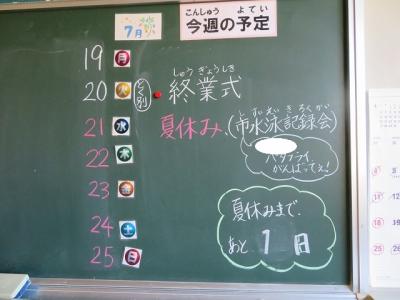 こんしゅう よてい
今週の予定
7月
19 月
しゅうぎょうしき
20 火 とく別 終業式
しすいえいきろくかい
21 水 夏休み。(市水泳記録会)
22 木
バタフライ
がんばってぇ!
23 金
24 土
25 日
夏休みまで、
あと 1日